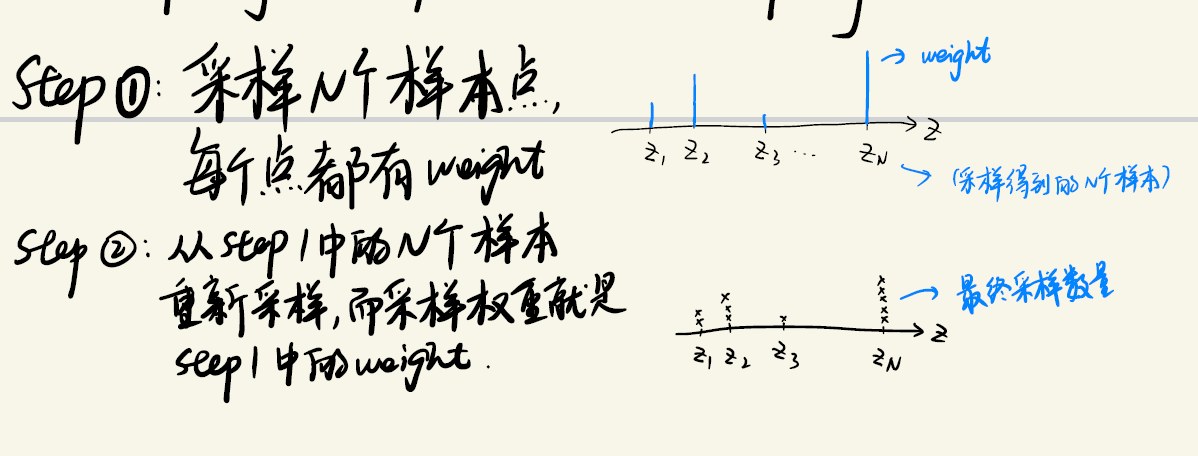 Step ①: 采样N个样本点,
每个点都有weight
→ weight
z₁ z₂ z₃ ... z_N z
→ (采样得到的N个样本)
Step ②: 从step1中的N个样本
重新采样,而采样权重就是
step1中的weight.
→ 最终采样数量
z₁ z₂ z₃ z_N z